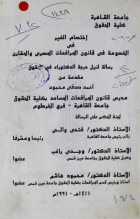 جامعة القاهرة
كلية الحقوق
إختصام الغير
الخصومة في قانون المرافعات المصري والمقارن
رسالة لنيل درجة الدكتوراه في الحقوق
مقدمة من
أحمد صدقي محمود
مدرس قانون المرافعات المساعد بكلية الحقوق
جامعة القاهرة - فرع الخرطوم
لجنة الحكم على الرسالة
الأستاذ الدكتور/ فتحي والي
الأستاذ الدكتور/ وجدي راغب
الأستاذ الدكتور/ محمود هاشم
١٤١١هـ - ١٩٩١م